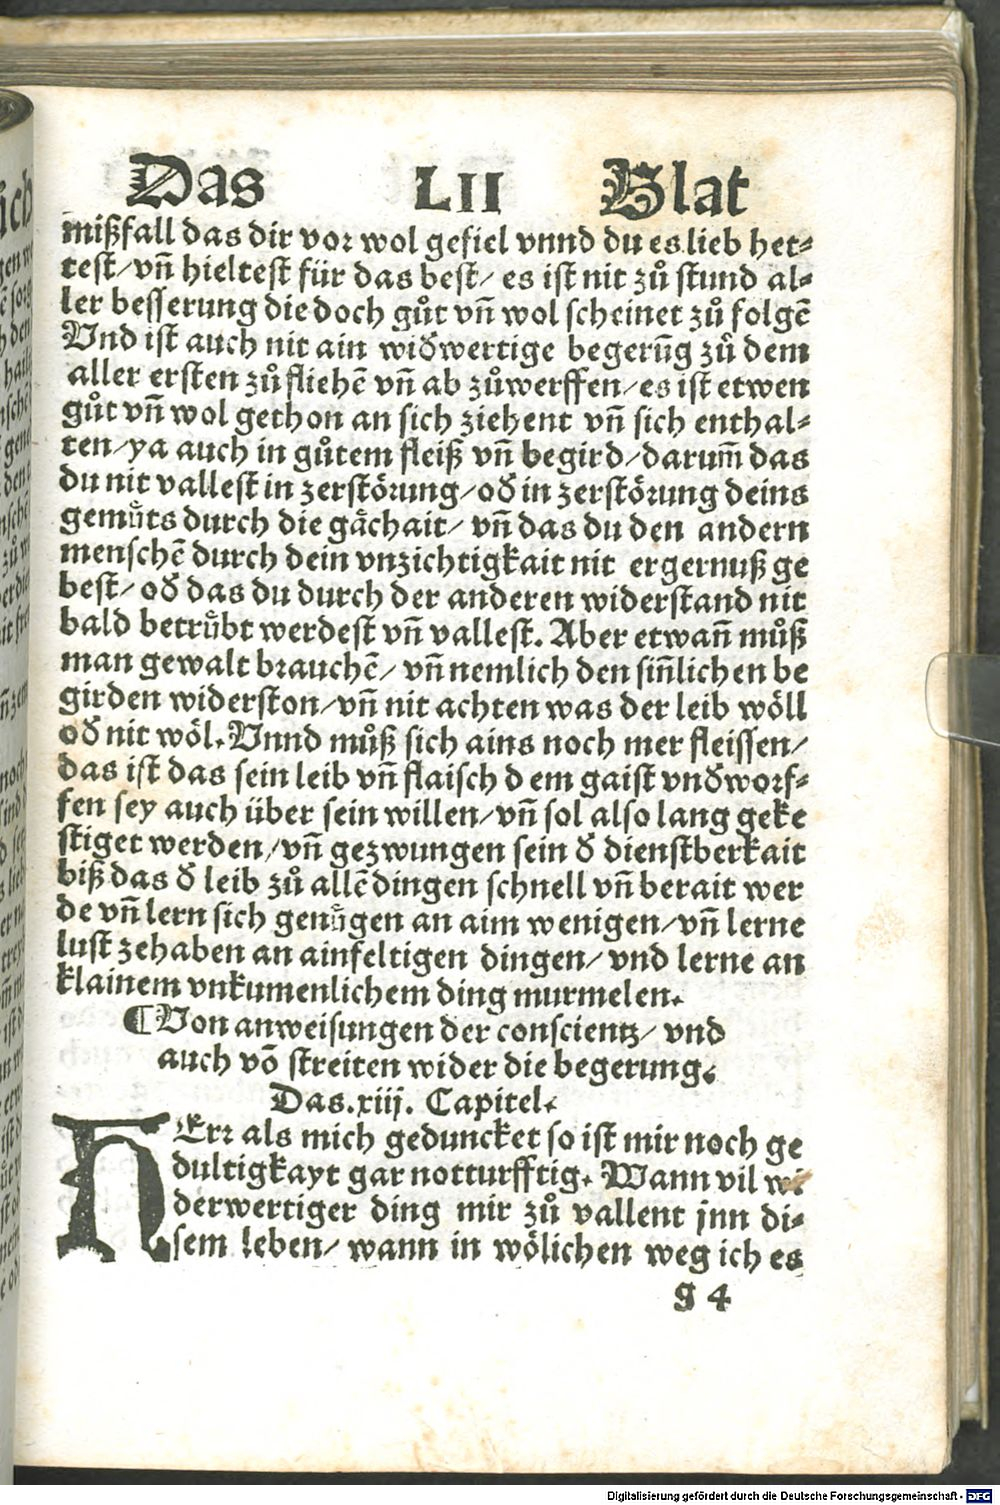 Das LII Blat
mißfall das dir vor wol gefiel vnnd du es lieb het⸗
test/ vñ hieltest für das best/ es ist nit zů stund al⸗
ler besserung die doch gůt vñ wol scheinet zů folgẽ
Vnd ist auch nit ain widwertige begerũg zů dem
aller ersten zů fliehẽ vñ ab zůwerffen/ es ist etwen
gůt vñ wol gethon an sich ziehent vñ sich enthal⸗
ten/ ya auch in gůtem fleiß vñ begird/ darum̃ das
du nit vallest in zerstörung/ od in zerstörung deins
gemůts durch die gåchait/ vñ das du den andern
menschẽ durch dein vnzichtigkait nit ergernuß ge
best/ od das du durch der anderen widerstand nit
bald betrůbt werdest vñ vallest. Aber etwañ můß
man gewalt brauchẽ/ vñ nemlich den siñlichen be
girden widerston/ vñ nit achten was der leib wöll
od nit wöl. Vnnd můß sich ains noch mer fleissen/
das ist das sein leib vñ flaisch dem gaist vndworf⸗
fen sey auch über sein willen/ vñ sol also lang geke
stiget werden/ vñ gezwungen sein d dienstberkait
biß das d leib zů allẽ dingen schnell vñ berait wer
de vñ lern sich genůgen an aim wenigen/ vñ lerne
lust zehaben an ainfeltigen dingen/ vnd lerne an
klainem vnkumenlichem ding murmelen.
¶Von anweisungen der conscientz/ vnd
auch võ streiten wider die begerung.
Das .xiij. Capitel.
HErr als mich geduncket so ist mir noch ge
dultigkayt gar notturfftig. Wann vil wi
derwertiger ding mir zů vallent jnn di⸗
sem leben/ wann in wölichen weg ich es
g 4
Digitalisierung gefördert durch die Deutsche Forschungsgemeinschaft - DFG